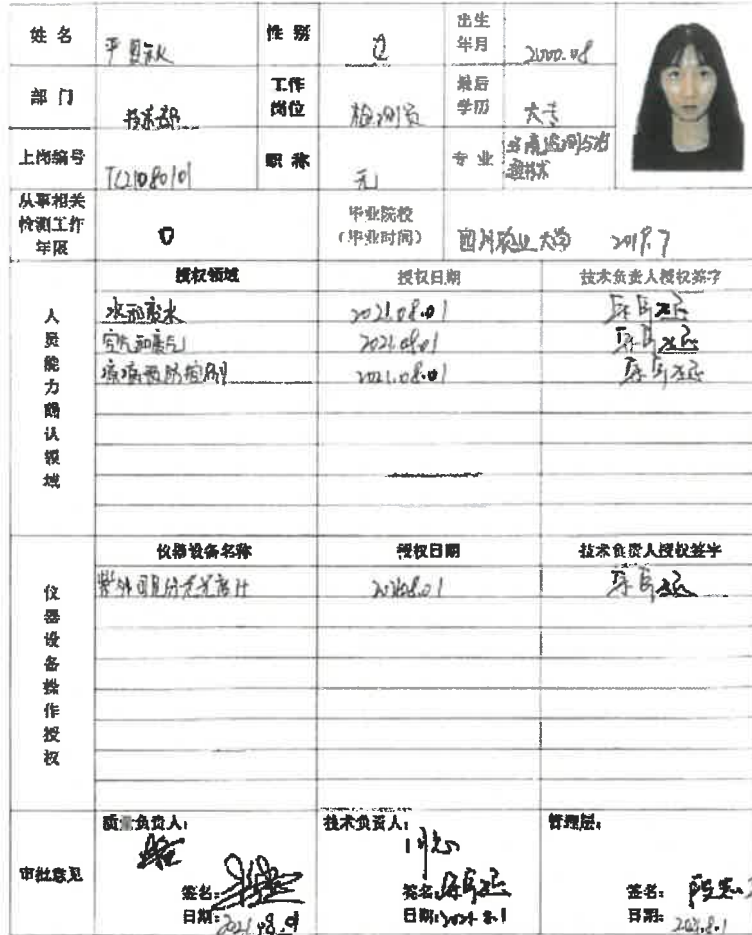 姓 名
性 别
出生
年月
2000.08
部 门
技术部
工作
岗位
检测员
最后
学历
大专
上岗编号
TC21080101
职 称
无
专 业
环境监测与治
理技术
从事相关
检测工作
年限
0
毕业院校
(毕业时间)
2019.7
人员能力确认领域
授权领域
授权日期
技术负责人授权签字
水和废水
2021.08.01
空气和废气
2021.08.01
2021.08.01
仪器设备操作授权
仪器设备名称
授权日期
技术负责人授权签字
紫外可见分光光度计
2021.08.01
审批意见
质量负责人:
技术负责人:
管理层:
同意
签名:
签名:
签名:
日期:2021.8.01
日期:2021.8.1
日期:2021.8.1